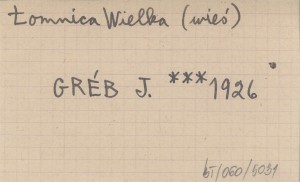 Łomnica Wielka (wieś)
GRÉB J. *** 1926
bT/060/5031